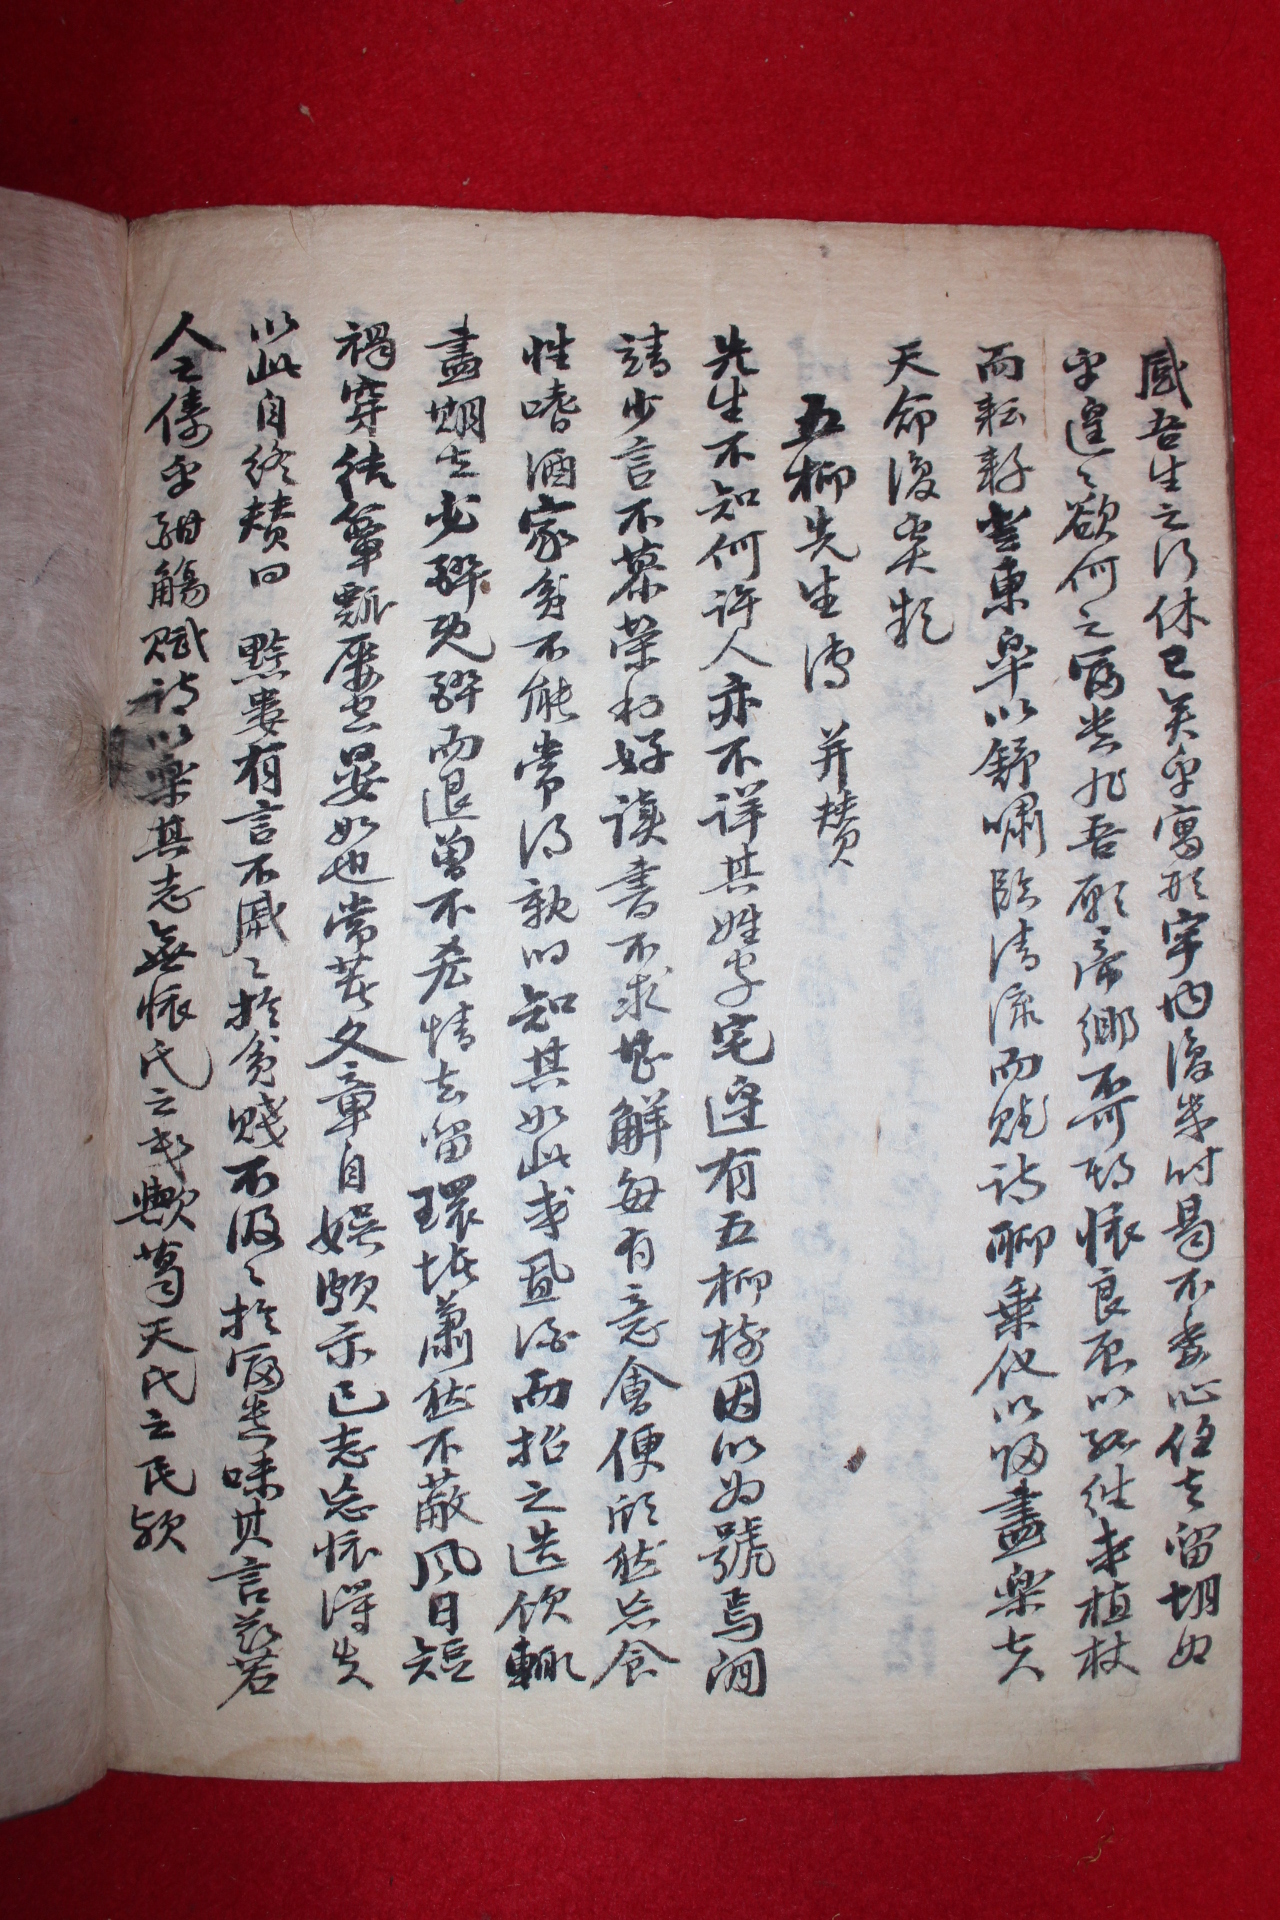 感吾生之行休已矣乎寓形宇內復幾時曷不委心任去留胡如
乎遑〻欲何之富貴非吾願帝鄉不可期懷良辰以孤往或植杖
而耘耔登東皐以舒嘯臨淸流而賦詩聊乘化以歸盡樂夫
天命復奚疑
五柳先生傳 并贊
先生不知何許人亦不詳其姓字宅邊有五柳樹因以爲號焉閑
靖少言不慕榮利好讀書不求甚解每有意會便欣然忘食
性嗜酒家貧不能常得親旧知其如此或置酒而招之造飮輒
盡期在必醉旣醉而退曾不吝情去留環堵蕭然不蔽風日短
褐穿結簞瓢屢空晏如也常著文章自娛頗示己志忘懷得失
以此自終贊曰 黔婁有言不戚〻於貧賤不汲〻於富貴味其言玆若
人之儔乎酣觴賦詩以樂其志無懷氏之民歟葛天氏之民歟